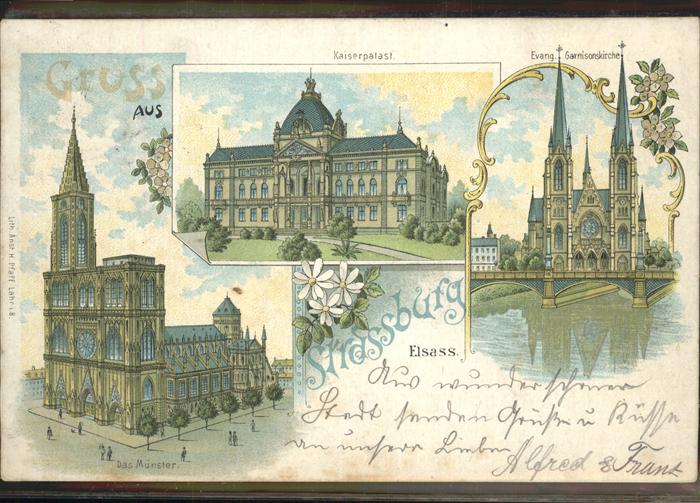 Gruss
AUS
Kaiserpalast.
Evang. Garnisonskirche
Lith. Anst. H. Pfaff Lahr i.B.
Strassburg
Elsass.
Das Münster.
Aus wunderschöner
Stadt senden Grüße u Küsse
an unsere Lieben
Alfred & Franz